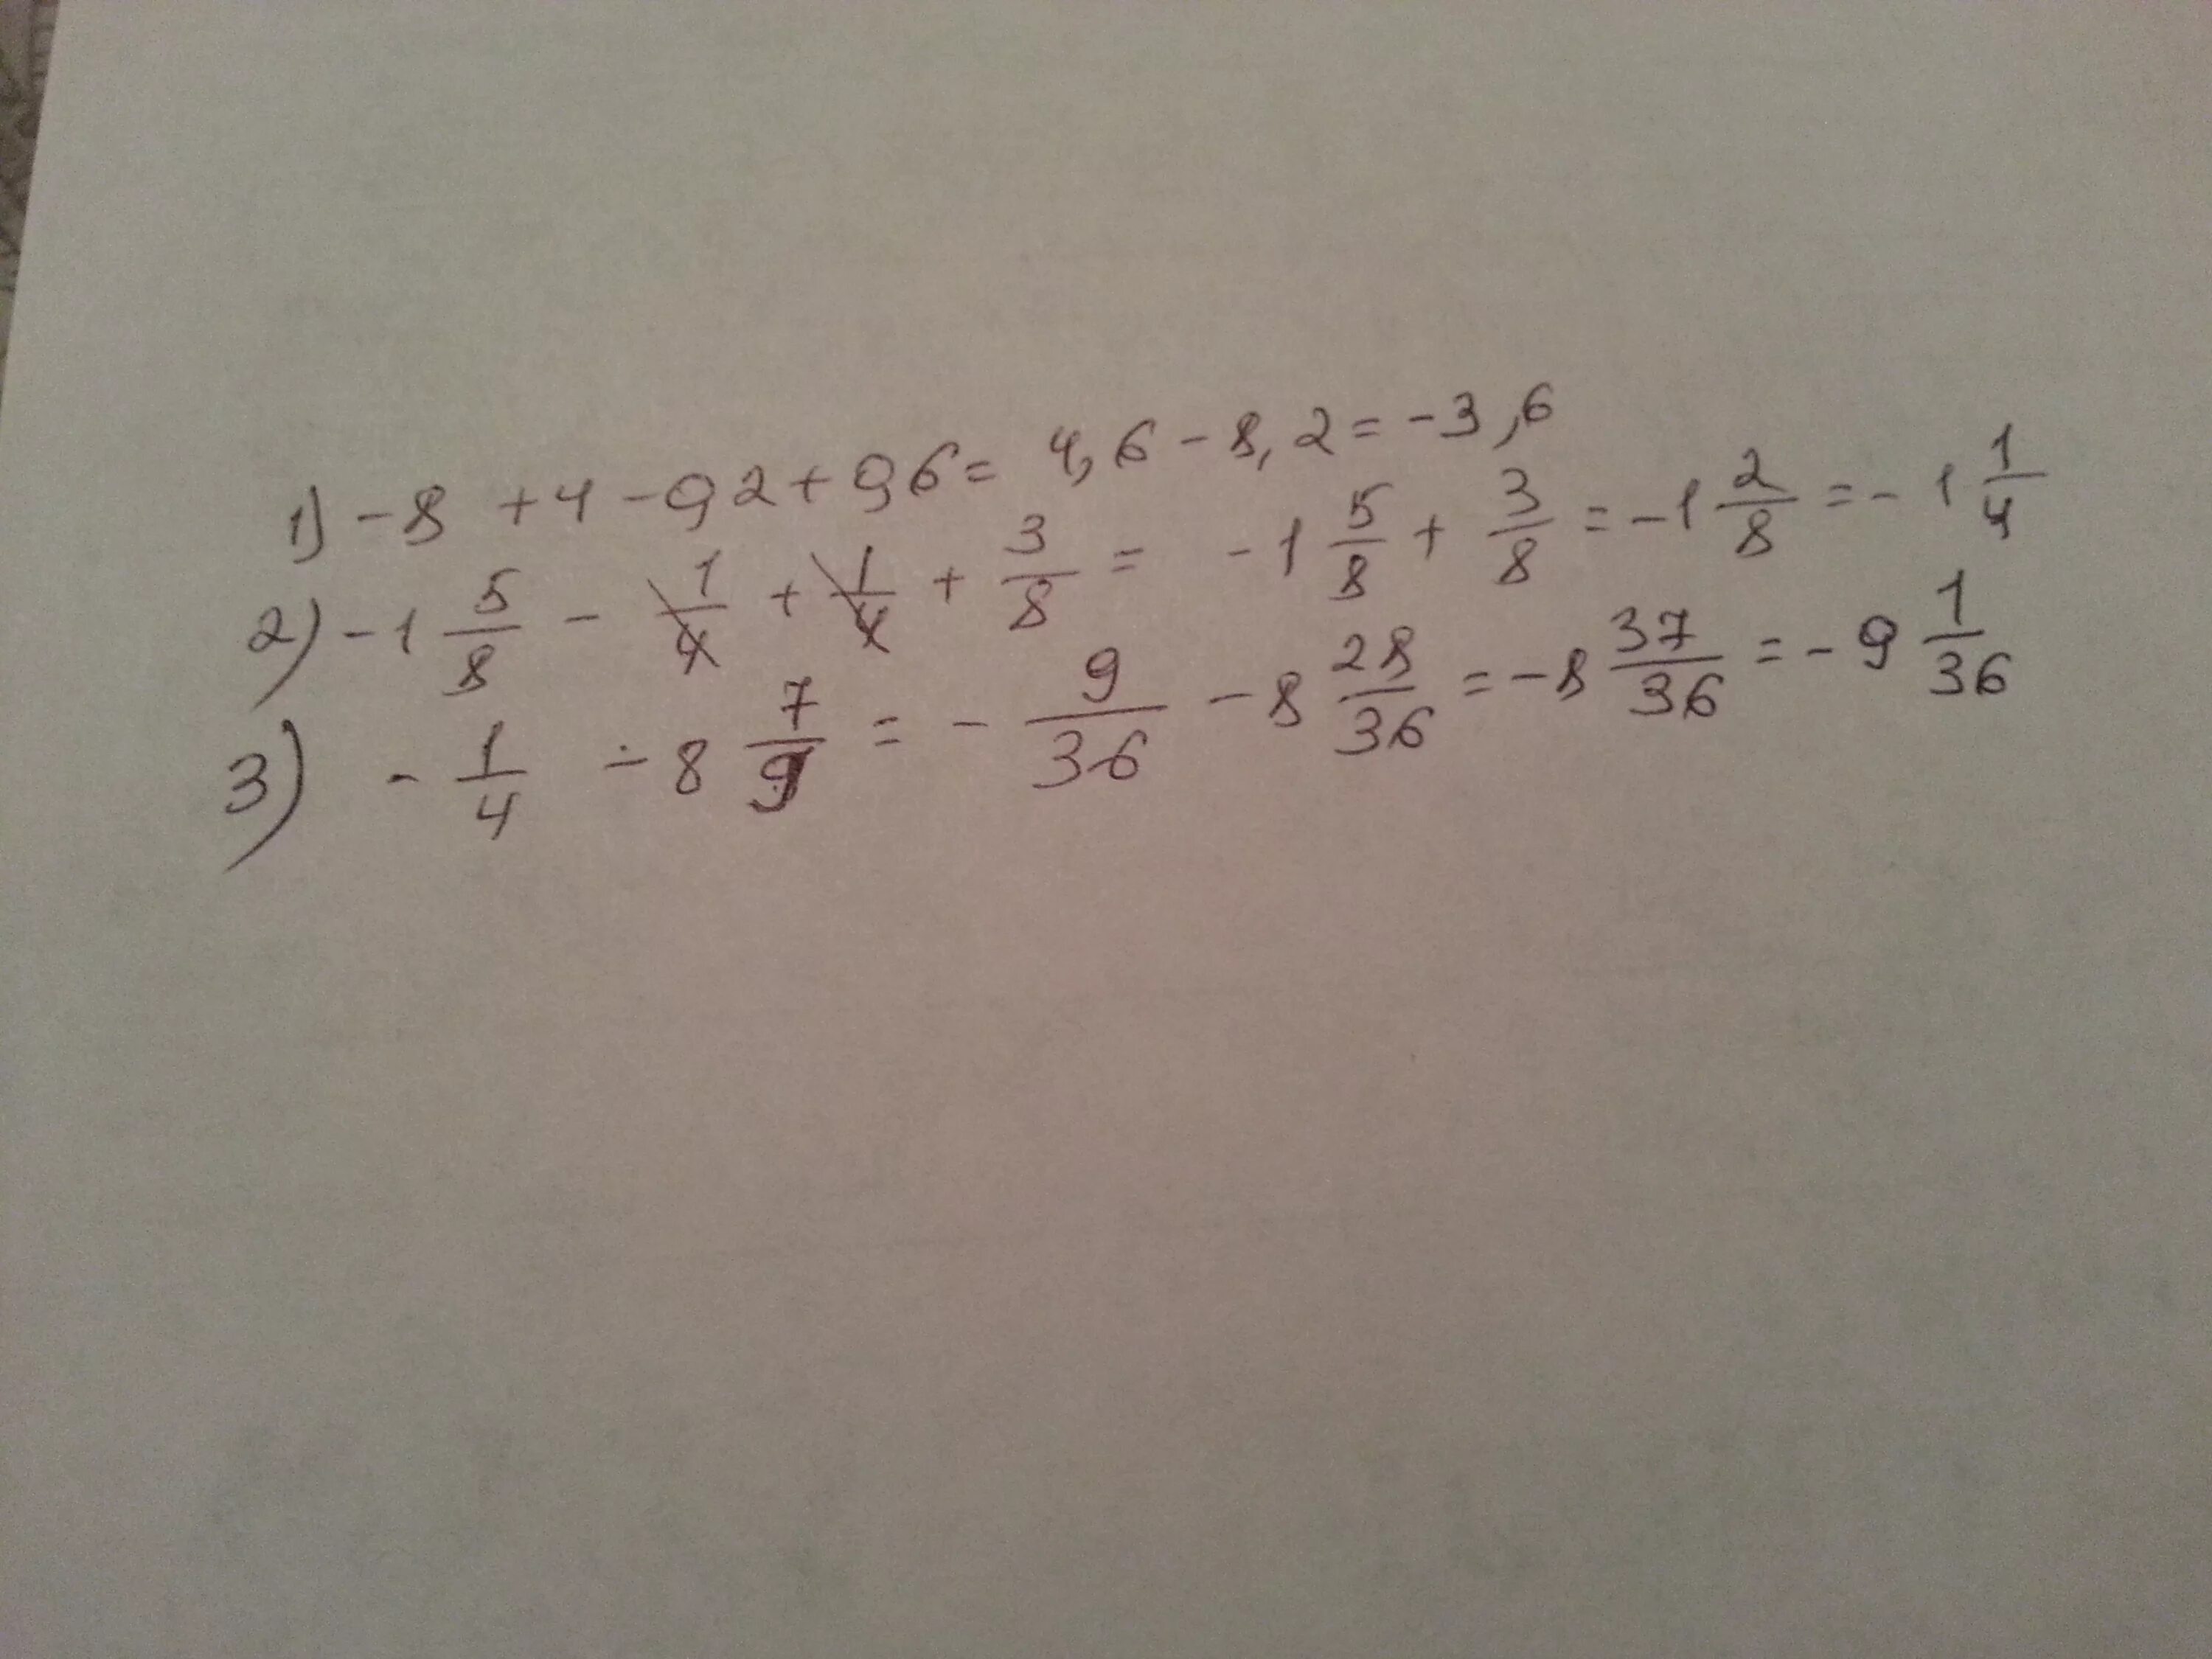 1) -8 +4 -0,2 + 0,6 = 4,6 - 8,2 = -3,6
2) -1 5/8 - 1/4 + 1/4 + 3/8 = -1 5/8 + 3/8 = -1 2/8 = -1 1/4
3) - 1/4 - 8 7/9 = - 9/36 - 8 28/36 = -8 37/36 = -9 1/36